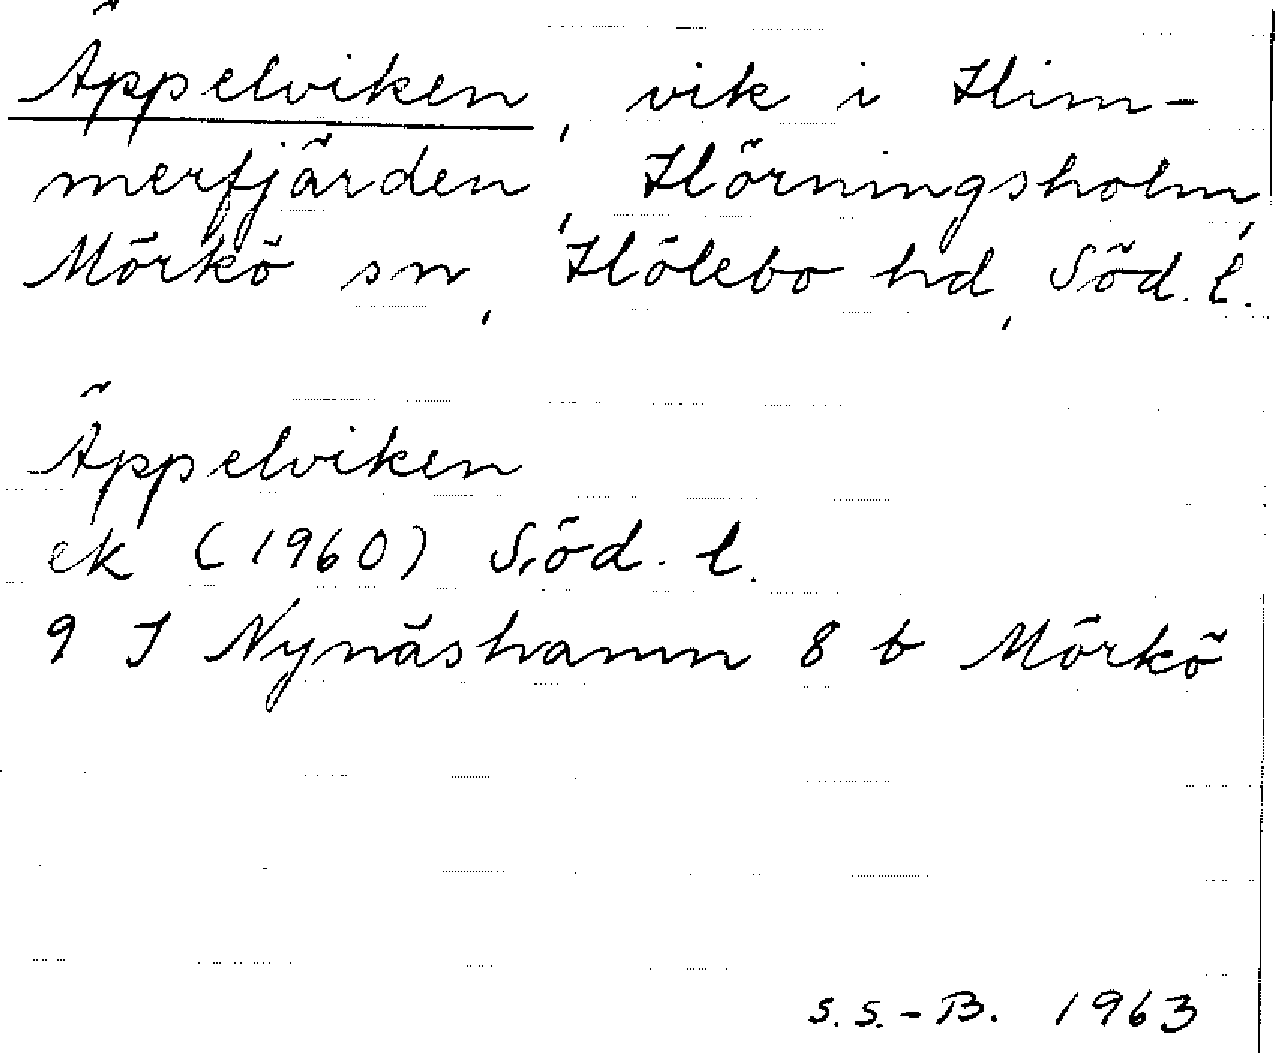 Äppelviken, vik i Him-
merfjärden, Hörningsholm,
Mörkö sn, Hölebo hd, Söd. l.
Äppelviken
ek (1960) Söd. l.
9 I Nynäshamn 8 b Mörkö
S. S.-B. 1963